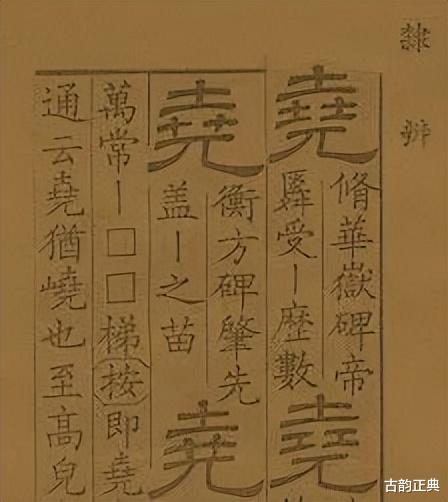 隸辨
堯
脩華嶽碑帝
受丨歷數
堯
堯
衡方碑肇先
盖丨之苗
堯
萬常丨□□梯按即堯
通云堯猶嶢也至高皃
古韵正典